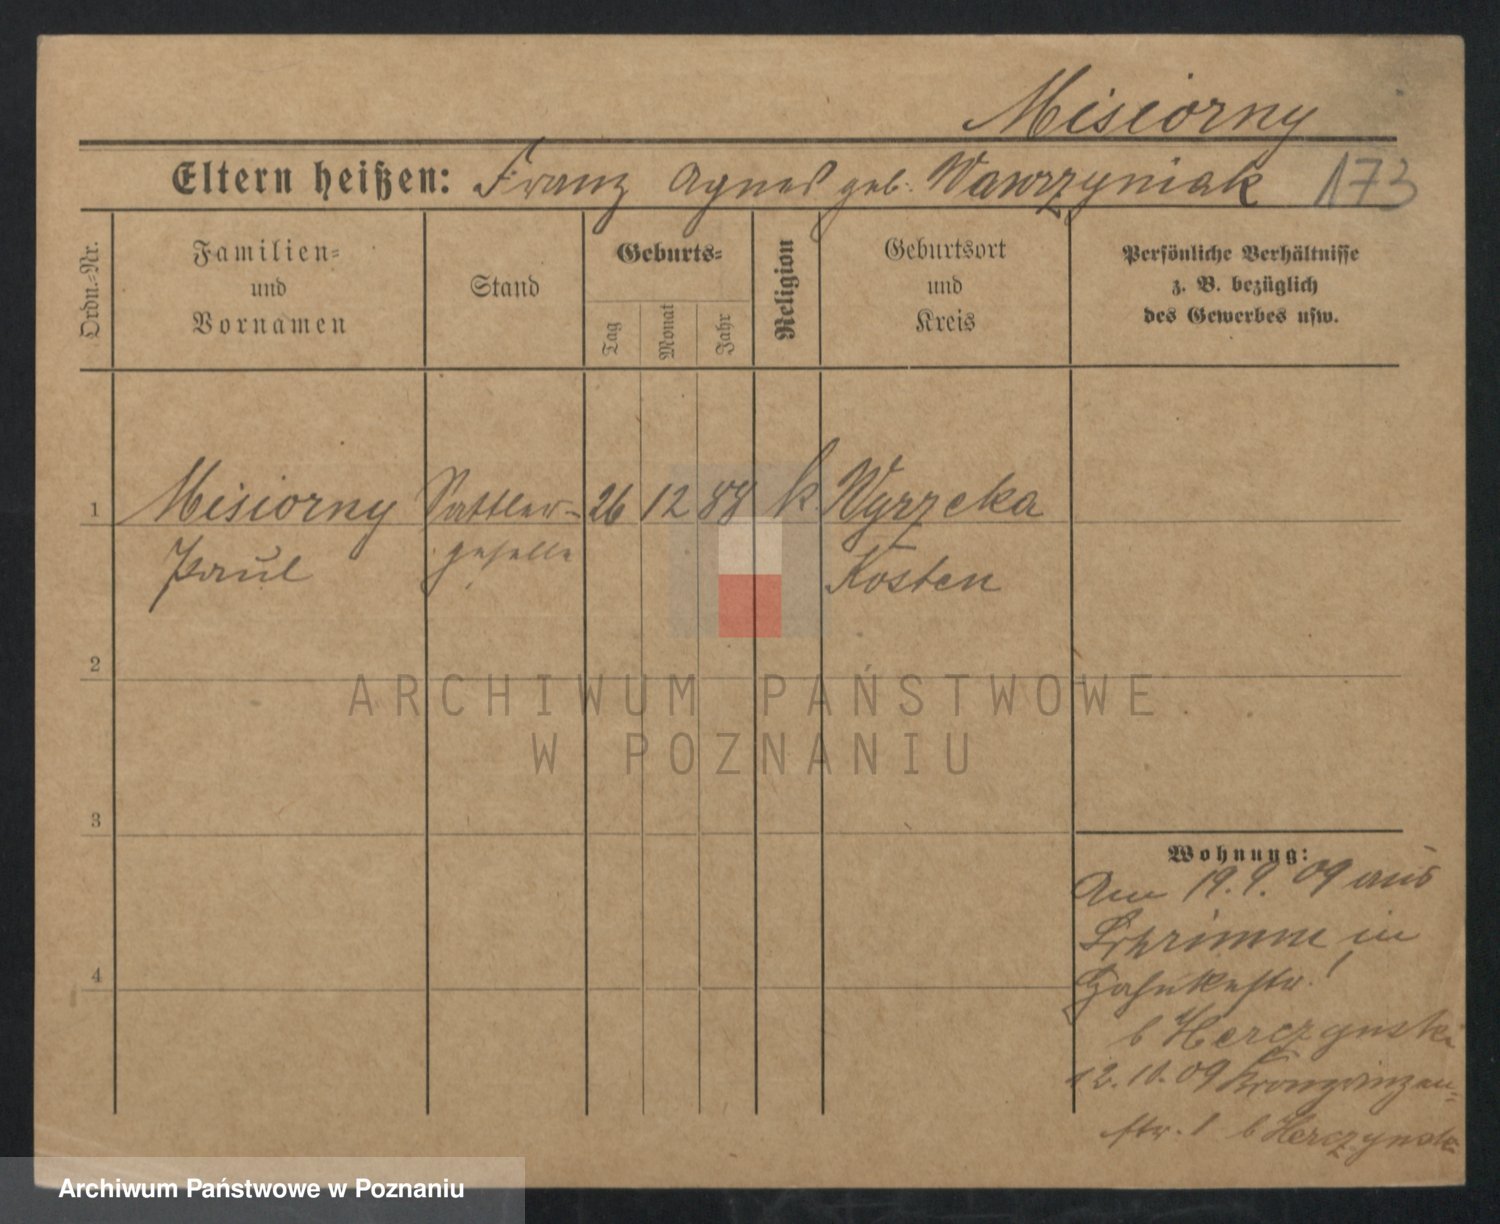 Misiorny
Eltern heißen: Franz Agnes geb. Wawrzyniak 173
Ordn.-Nr.
Familien-
und
Vornamen
Stand
Geburts-
Tag
Monat
Jahr
Religion
Geburtsort
und
Kreis
Persönliche Verhältnisse
z. B. bezüglich
des Gewerbes usw.
1 Misiorny Sattler- 26 12 88 k Wyrzeka
Paul geselle Kosten
2
3
4
Wohnung:
Am 19.9.09 aus
Schrimm in
b Herczynski
12.10.09 Kronprinzen-
str. 1 b Herczynski
ARCHIWUM PAŃSTWOWE
W POZNANIU
Archiwum Państwowe w Poznaniu